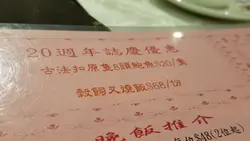 20週年誌慶優惠
古法扣原隻8頭鮑魚$20/隻
穀飼叉燒飯$68/份
晚飯推介
$48(2位起)